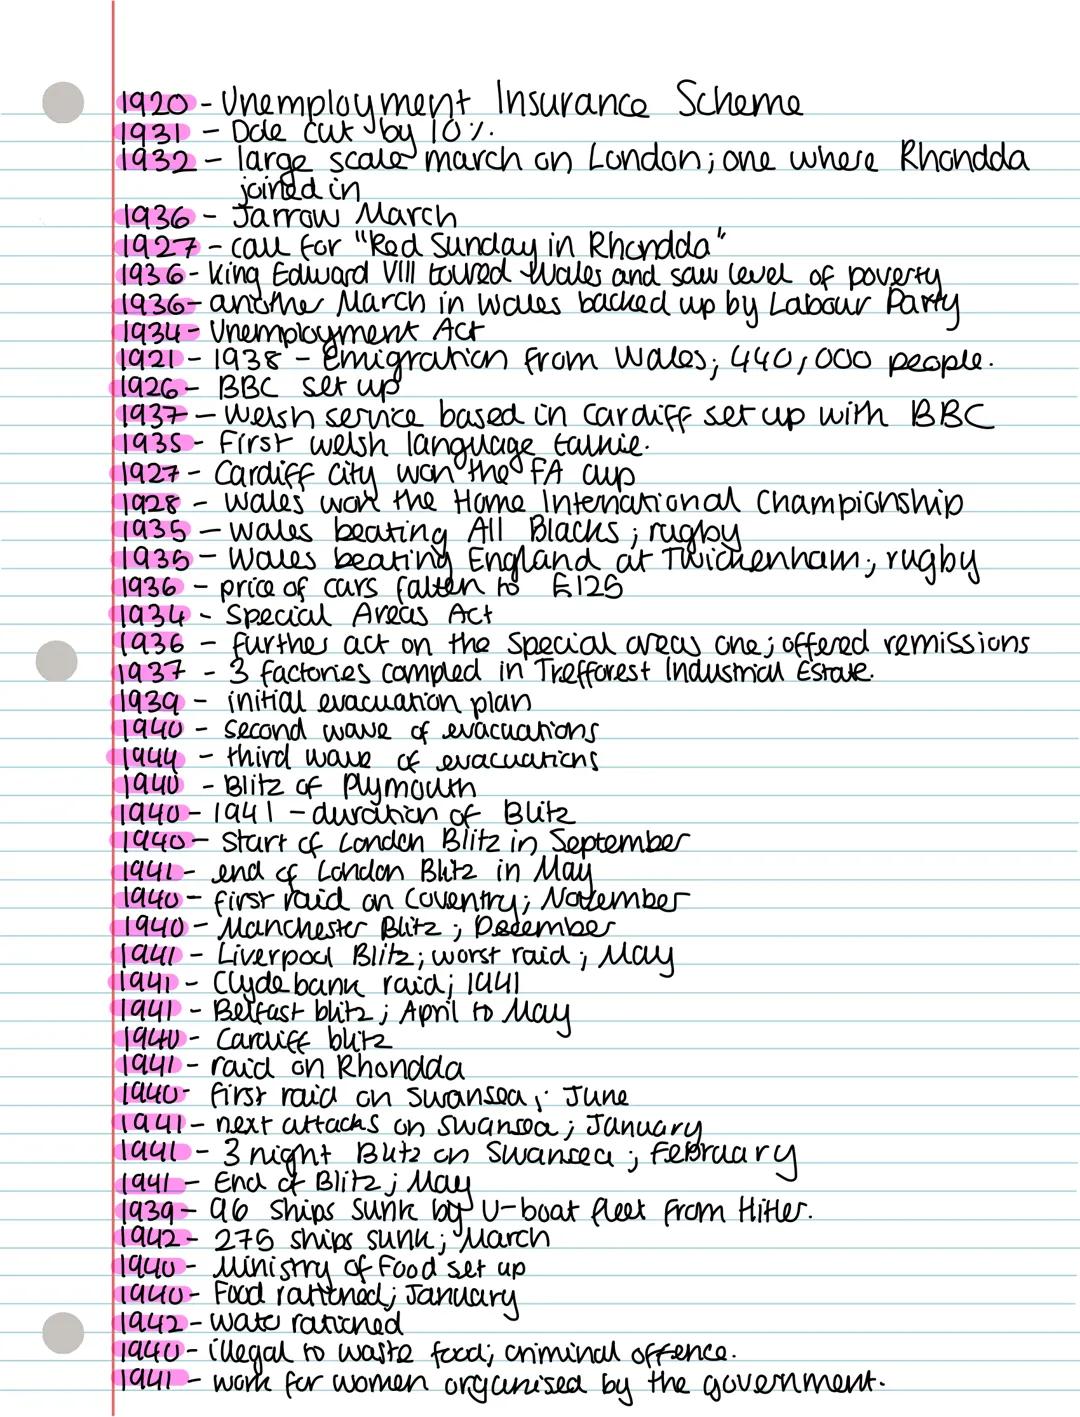 1920 - Unemployment Insurance Scheme
1931 - Dole cut by 10%.
1932 - large scale march on London; one where Rhondda
joined in
1936 - Jarrow March
1927 - call for "Red Sunday in Rhondda"
1936 - King Edward VIII toured Wales and saw level of poverty
1936 - another March in Wales backed up by Labour Party
1934 - Unemployment Act
1921 - 1938 - Emigration from Wales; 440,000 people.
1926 - BBC set up
1937 - Welsh service based in Cardiff set up with BBC
1935 - First welsh language talkie.
1927 - Cardiff City won the FA cup
1928 - Wales won the Home International Championship
1935 - Wales beating All Blacks; rugby
1935 - Wales beating England at Twickenham; rugby
1936 - price of cars fallen to £125
1934 - Special Areas Act
1936 - further act on the Special areas one; offered remissions
1937 - 3 factories compled in Trefforest Industrial Estate.
1939 - initial evacuation plan
1940 - second wave of evacuations
1944 - third wave of evacuations
1940 - Blitz of Plymouth
1940 - 1941 - duration of Blitz
1940 - Start of London Blitz in September
1941 - end of London Blitz in May
1940 - first raid on Coventry; November
1940 - Manchester Blitz; December
1941 - Liverpool Blitz; worst raid; May
1941 - Clydebank raid; 1941
1941 - Belfast blitz; April to May
1940 - Cardiff blitz
1941 - raid on Rhondda
1940 - first raid on Swansea; June
1941 - next attacks on Swansea; January
1941 - 3 night Blitz on Swansea; February
1941 - End of Blitz; May
1939 - 96 ships sunk by U-boat fleet from Hitler.
1942 - 275 ships sunk; March
1940 - Ministry of Food set up
1940 - Food rationed; January
1942 - rationed
1940 - illegal to waste food; criminal offence.
1941 - work for women organised by the government.